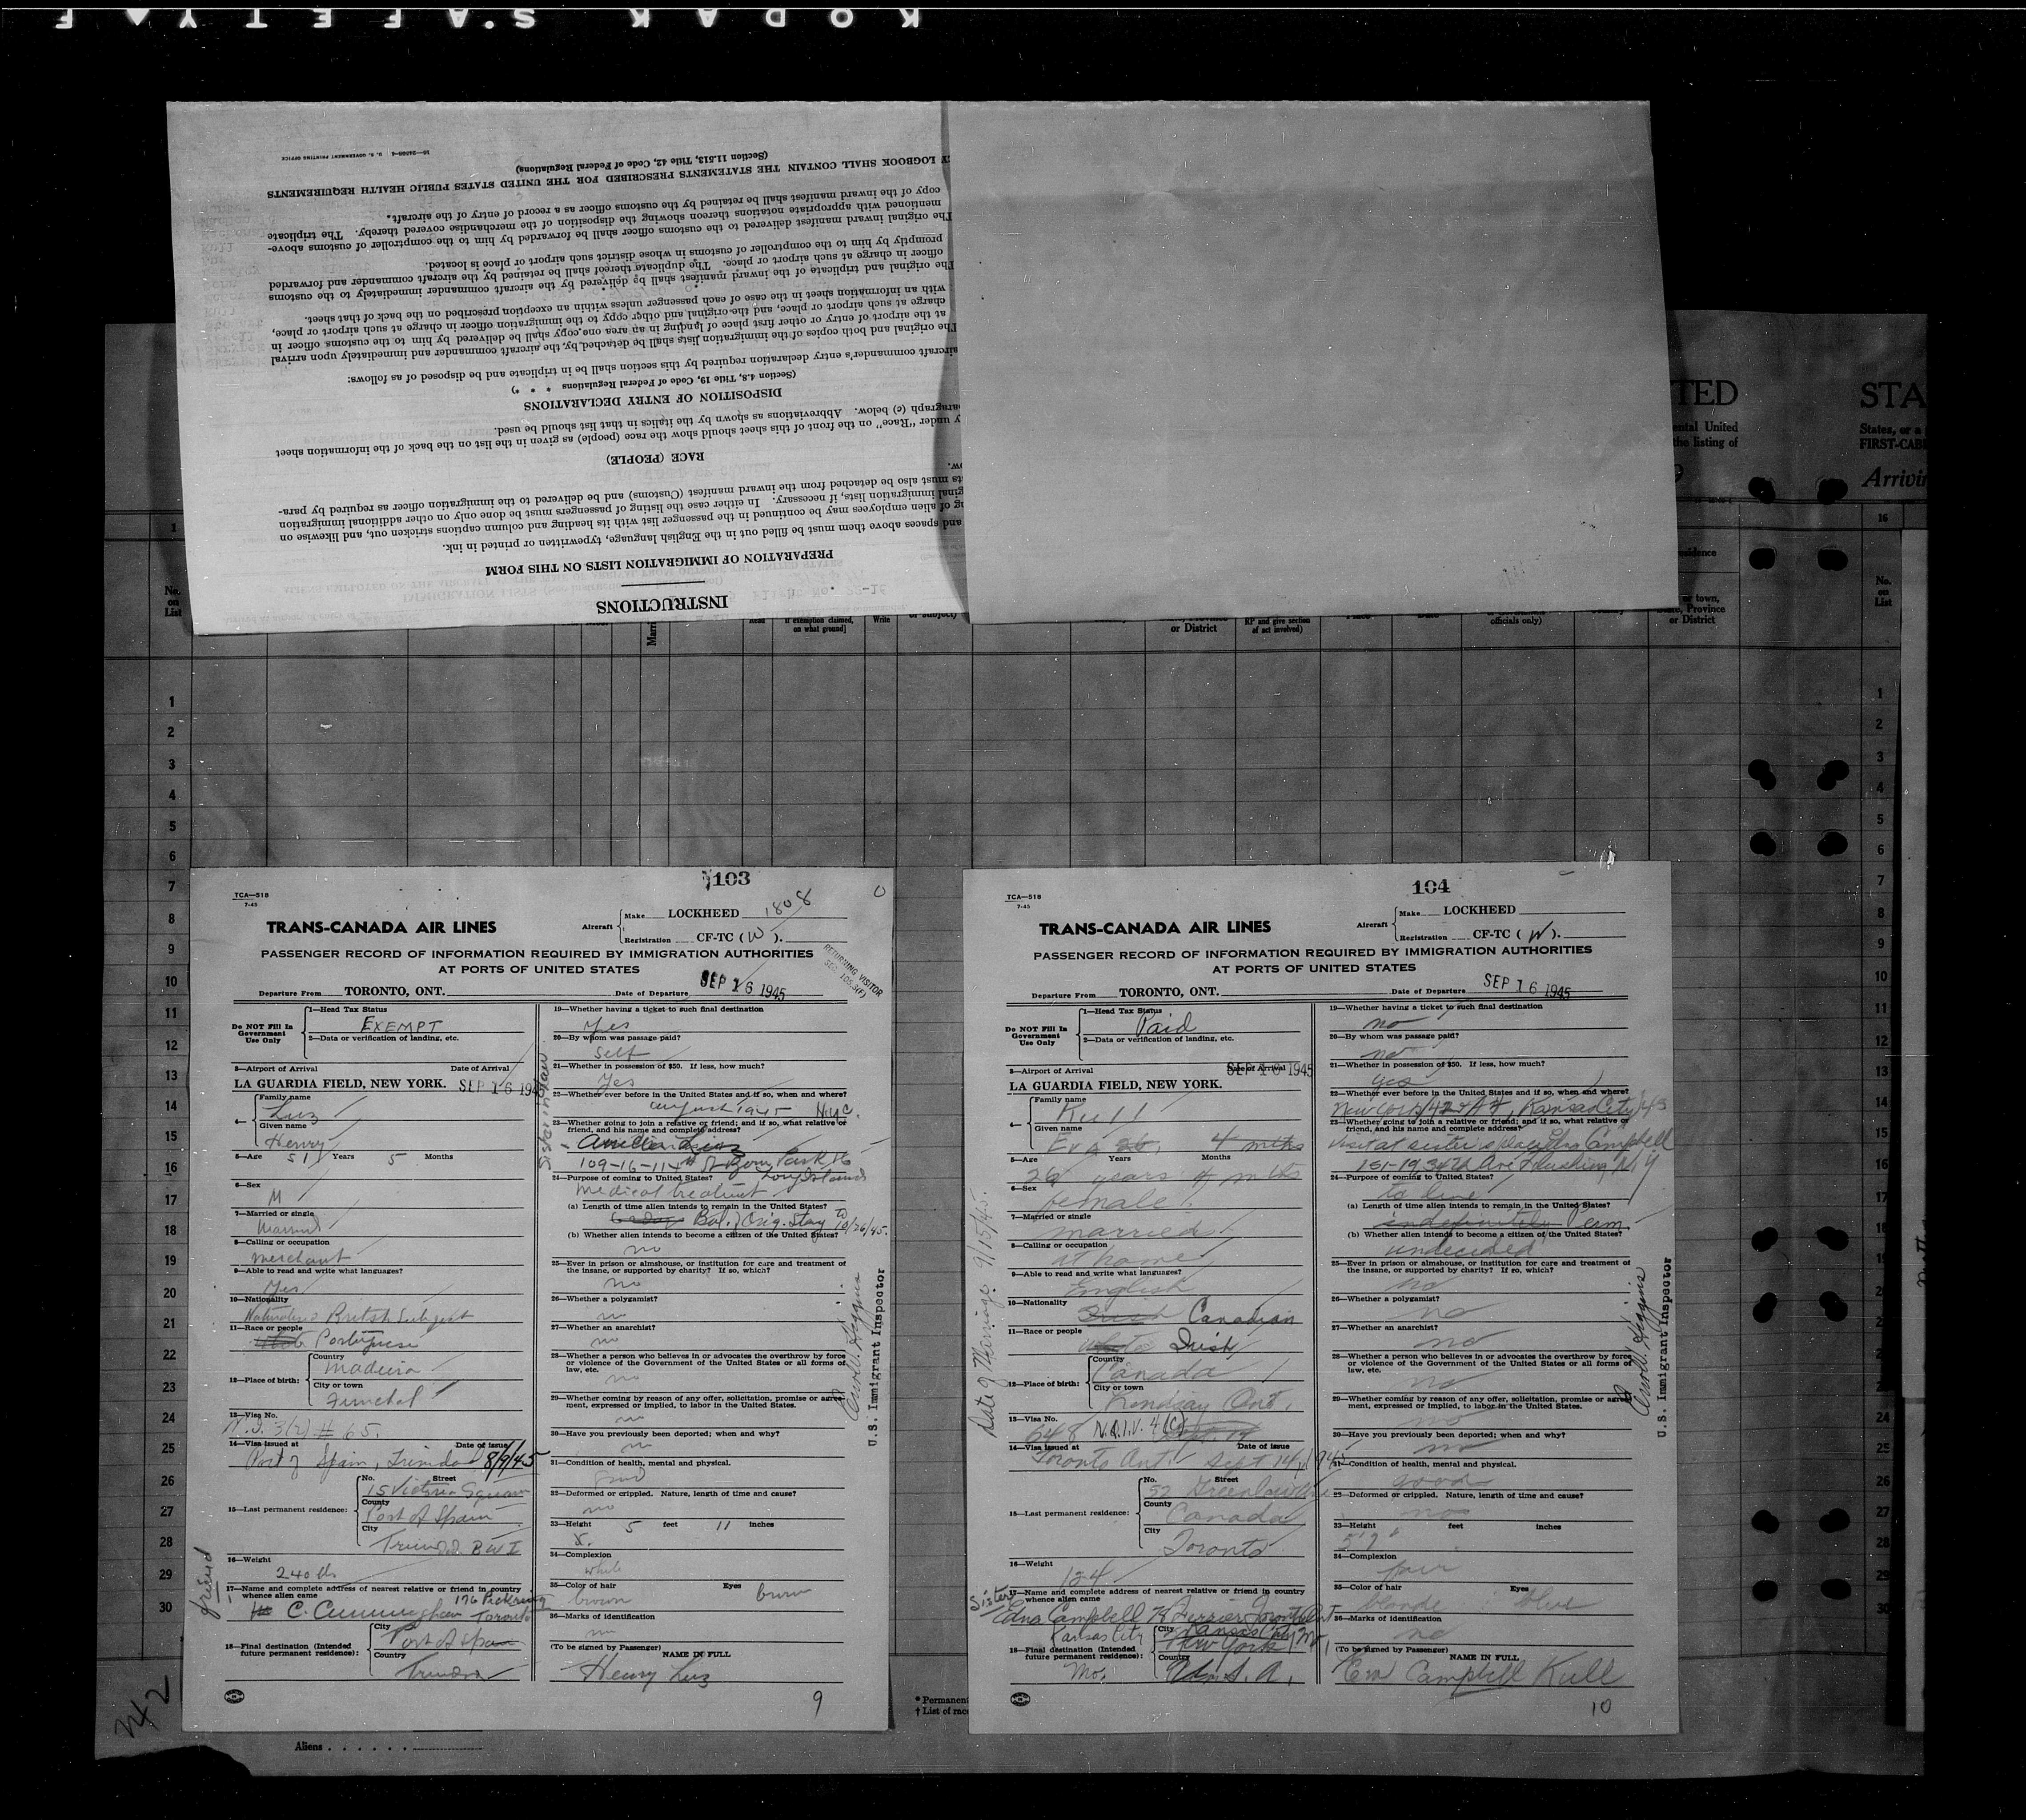 KODAK SAFETY
INSTRUCTIONS
PREPARATION OF IMMIGRATION LISTS ON THIS FORM
and spaces above them must be filled out in the English language, typewritten or printed in ink.
of alien employees may be continued in the passenger list with its heading and column captions stricken out, and likewise on
immigration lists, if necessary. In either case the listing of passengers must be done only on other additional immigration
must also be detached from the inward manifest (Customs) and be delivered to the immigration officer as required by para-
RACE (PEOPLE)
under "Race" on the front of this sheet should show the race (people) as given in the list on the back of the information sheet
(c) below. Abbreviations as shown by the italics in that list should be used.
DISPOSITION OF ENTRY DECLARATIONS
(Section 4.8, Title 19, Code of Federal Regulations * * *)
aircraft commander's entry declaration required by this section shall be in triplicate and be disposed of as follows:
The original and both copies of the immigration lists shall be detached by the aircraft commander and immediately upon arrival
at the airport of entry or other first place of landing in an area one copy shall be delivered by him to the customs officer in
charge at such airport or place, and the original and other copy to the immigration officer in charge at such airport or place,
with an information sheet in the case of each passenger unless within an exception prescribed on the back of that sheet.
The original and triplicate of the inward manifest shall be delivered by the aircraft commander immediately to the customs
officer in charge at such airport or place. The duplicate thereof shall be retained by the aircraft commander and forwarded
promptly by him to the comptroller of customs in whose district such airport or place is located.
The original inward manifest delivered to the customs officer shall be forwarded by him to the comptroller of customs above-
mentioned with appropriate notations thereon showing the disposition of the merchandise covered thereby. The triplicate
copy of the inward manifest shall be retained by the customs officer as a record of entry of the aircraft.
LOGBOOK SHALL CONTAIN THE STATEMENTS PRESCRIBED FOR THE UNITED STATES PUBLIC HEALTH REQUIREMENTS
(Section 11.513, Title 42, Code of Federal Regulations)
U. S. GOVERNMENT PRINTING OFFICE
TED
STA
the listing of
FIRST-CAB
1
16
No. on List
or District
officials only)
1
2
3
4
5
6
7
8
9
10
11
12
13
14
15
16
17
18
19
20
21
22
23
24
25
26
27
28
29
30
103
TCA—518
7-45
TRANS-CANADA AIR LINES
Aircraft
Make LOCKHEED 1808
Registration CF-TC (W).
PASSENGER RECORD OF INFORMATION REQUIRED BY IMMIGRATION AUTHORITIES
AT PORTS OF UNITED STATES
RETURNING VISITOR
Departure From TORONTO, ONT. Date of Departure SEP 16 1945
Do NOT Fill In Government Use Only
1—Head Tax Status
EXEMPT
2—Data or verification of landing, etc.
3—Airport of Arrival Date of Arrival
LA GUARDIA FIELD, NEW YORK. SEP 16 194
4—
Family name
Luz
Given name
Henry
5—Age 51 Years 5 Months
6—Sex
M
7—Married or single
Married
8—Calling or occupation
Merchant
9—Able to read and write what languages?
Yes
10—Nationality
Naturalized British Subject
11—Race or people
Portuguese
12—Place of birth:
Country
Madeira
City or town
Funchal
13—Visa No.
3(2) # 65.
14—Visa issued at Date of issue
Port of Spain, Trinidad 8/9/45
15—Last permanent residence:
No. Street
15 Victoria Square
County
Port of Spain
City
Trinidad BWI
16—Weight
240 lbs
17—Name and complete address of nearest relative or friend in country whence alien came
friend
C. Cunningham 176 Pickering Toronto
18—Final destination (Intended future permanent residence):
City
Port of Spain
Country
Trinidad
19—Whether having a ticket to such final destination
Yes
20—By whom was passage paid?
Self
21—Whether in possession of $50. If less, how much?
Yes
22—Whether ever before in the United States and if so, when and where?
August 1945 N.Y.C.
23—Whether going to join a relative or friend; and if so, what relative or friend, and his name and complete address?
Sister in law
Amelia Luz
109-16-114th St Ozone Park
Long Island
24—Purpose of coming to United States?
Medical treatment
(a) Length of time alien intends to remain in the United States?
Bal. Orig. Stay to 10/26/45.
(b) Whether alien intends to become a citizen of the United States?
no
25—Ever in prison or almshouse, or institution for care and treatment of the insane, or supported by charity? If so, which?
no
26—Whether a polygamist?
no
27—Whether an anarchist?
no
28—Whether a person who believes in or advocates the overthrow by force or violence of the Government of the United States or all forms of law, etc.
no
29—Whether coming by reason of any offer, solicitation, promise or agreement, expressed or implied, to labor in the United States.
no
30—Have you previously been deported; when and why?
no
31—Condition of health, mental and physical.
good
32—Deformed or crippled. Nature, length of time and cause?
no
33—Height 5 feet 11 inches
34—Complexion
white
35—Color of hair Eyes
brown brown
36—Marks of identification
no
(To be signed by Passenger) NAME IN FULL
Henry Luz
U.S. Immigrant Inspector
9
104
TCA—518
7-45
TRANS-CANADA AIR LINES
Aircraft
Make LOCKHEED
Registration CF-TC (W).
PASSENGER RECORD OF INFORMATION REQUIRED BY IMMIGRATION AUTHORITIES
AT PORTS OF UNITED STATES
Departure From TORONTO, ONT. Date of Departure SEP 16 1945
Do NOT Fill In Government Use Only
1—Head Tax Status
Paid
2—Data or verification of landing, etc.
3—Airport of Arrival Date of Arrival
LA GUARDIA FIELD, NEW YORK. SEP 16 1945
4—
Family name
Kull
Given name
Eva 26, 4 mths
5—Age Years Months
26 years 4 mths
6—Sex
female
7—Married or single
married
8—Calling or occupation
at home
9—Able to read and write what languages?
English
10—Nationality
Irish Canadian
11—Race or people
white Irish
12—Place of birth:
Country
Canada
City or town
Lindsay Ont.
13—Visa No.
648 N.Q.I.V. 4(C)
14—Visa issued at Date of issue
Toronto Ont. Sept 14, 1945
15—Last permanent residence:
No. Street
52 Greenlaw Ave
County
Canada
City
Toronto
16—Weight
124
17—Name and complete address of nearest relative or friend in country whence alien came
Sister
Edna Campbell Ferrier Toronto Ont
18—Final destination (Intended future permanent residence):
Kansas City Mo.
City
New York
Country
U.S.A.
Date of Marriage 1/15/45.
19—Whether having a ticket to such final destination
no
20—By whom was passage paid?
no
21—Whether in possession of $50. If less, how much?
yes
22—Whether ever before in the United States and if so, when and where?
New York, Kansas City
23—Whether going to join a relative or friend; and if so, what relative or friend, and his name and complete address?
Visit at sister's place Campbell
151-19, 34th Ave Flushing N.Y
24—Purpose of coming to United States?
to live
(a) Length of time alien intends to remain in the United States?
indefinitely Perm.
(b) Whether alien intends to become a citizen of the United States?
undecided
25—Ever in prison or almshouse, or institution for care and treatment of the insane, or supported by charity? If so, which?
no
26—Whether a polygamist?
no
27—Whether an anarchist?
no
28—Whether a person who believes in or advocates the overthrow by force or violence of the Government of the United States or all forms of law, etc.
no
29—Whether coming by reason of any offer, solicitation, promise or agreement, expressed or implied, to labor in the United States.
no
30—Have you previously been deported; when and why?
no
31—Condition of health, mental and physical.
good
32—Deformed or crippled. Nature, length of time and cause?
no
33—Height feet inches
5'9"
34—Complexion
fair
35—Color of hair Eyes
blonde blue
36—Marks of identification
no
(To be signed by Passenger) NAME IN FULL
Eva Campbell Kull
U.S. Immigrant Inspector
10
* Permanent
† List of rac
Aliens